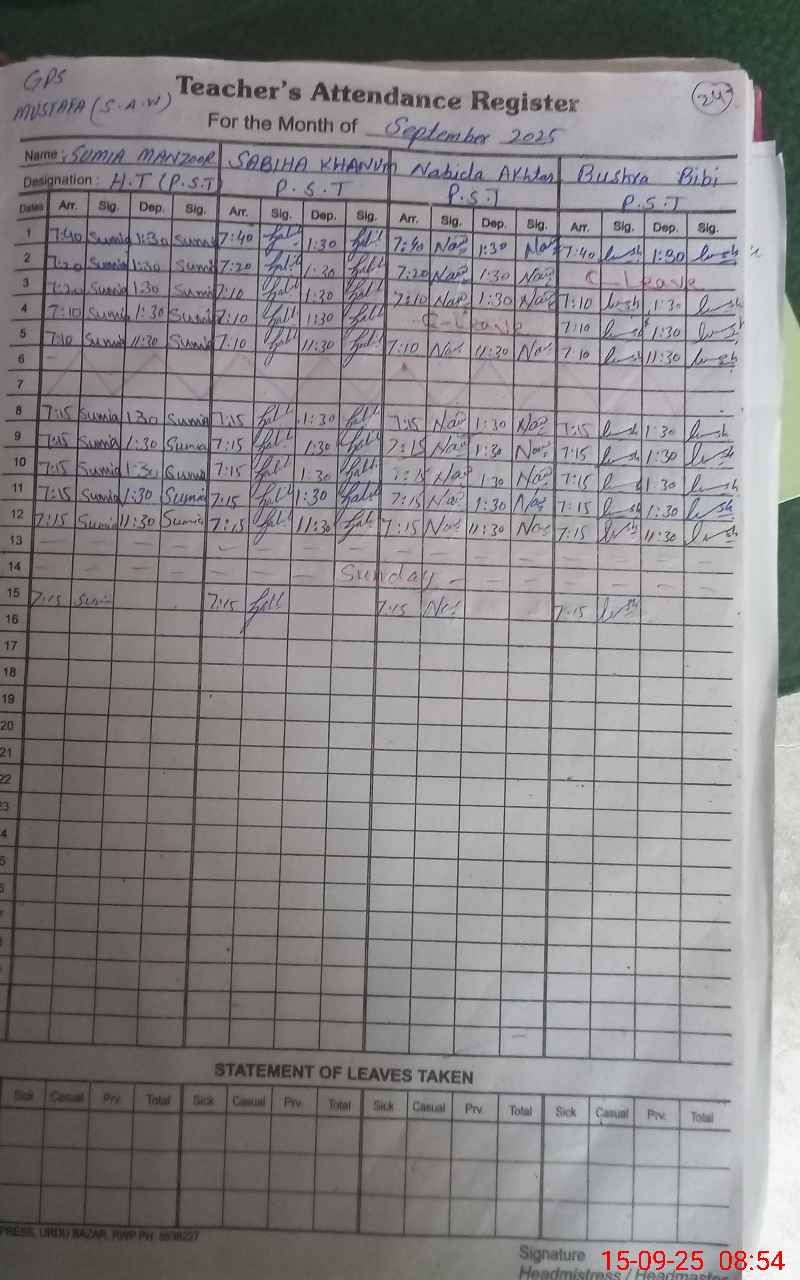 GPS
MUSTAFA (S.A.W)
Teacher's Attendance Register
243
For the Month of September 2025
Name: SUMIA MANZOOR SABIHA KHANUM Nabida Akhtar Bushra Bibi
Designation: H.T (P.S.T) P.S.T P.S.T P.S.T
Dates Arr. Sig. Dep. Sig. Arr. Sig. Dep. Sig. Arr. Sig. Dep. Sig. Arr. Sig. Dep. Sig.
1 7:40 Sumia 1:30 Sumia 7:40 1:30 7:40 Naz 1:30 Naz 7:40 bush 1:30 bush
2 7:20 Sumia 1:30 Sumia 7:20 1:30 7:20 Naz 1:30 Naz C-Leave
3 7:20 Sumia 1:30 Sumia 7:10 1:30 7:10 Naz 1:30 Naz 7:10 bush 1:30 bush
4 7:10 Sumia 1:30 Sumia 7:10 1:30 C-Leave 7:10 bush 1:30 bush
5 7:10 Sumia 11:30 Sumia 7:10 11:30 7:10 Naz 11:30 Naz 7:10 bush 11:30 bush
6
7
8 7:15 Sumia 1:30 Sumia 7:15 1:30 7:15 Naz 1:30 Naz 7:15 bush 1:30 bush
9 7:15 Sumia 1:30 Sumia 7:15 1:30 7:15 Naz 1:30 Naz 7:15 bush 1:30 bush
10 7:15 Sumia 1:30 Sumia 7:15 1:30 7:15 Naz 1:30 Naz 7:15 bush 1:30 bush
11 7:15 Sumia 1:30 Sumia 7:15 1:30 7:15 Naz 1:30 Naz 7:15 bush 1:30 bush
12 7:15 Sumia 11:30 Sumia 7:15 11:30 7:15 Naz 11:30 Naz 7:15 bush 11:30 bush
13
14 Sunday
15 7:15 Sumia 7:15 7:15 Naz 7:15 bush
16
17
18
19
20
21
22
23
4
5
STATEMENT OF LEAVES TAKEN
Sick Casual Prv. Total Sick Casual Prv. Total Sick Casual Prv. Total Sick Casual Prv. Total
PRESS, URDU BAZAR, RWP PH:
Signature
Headmistress / Headmaster
15-09-25 08:54